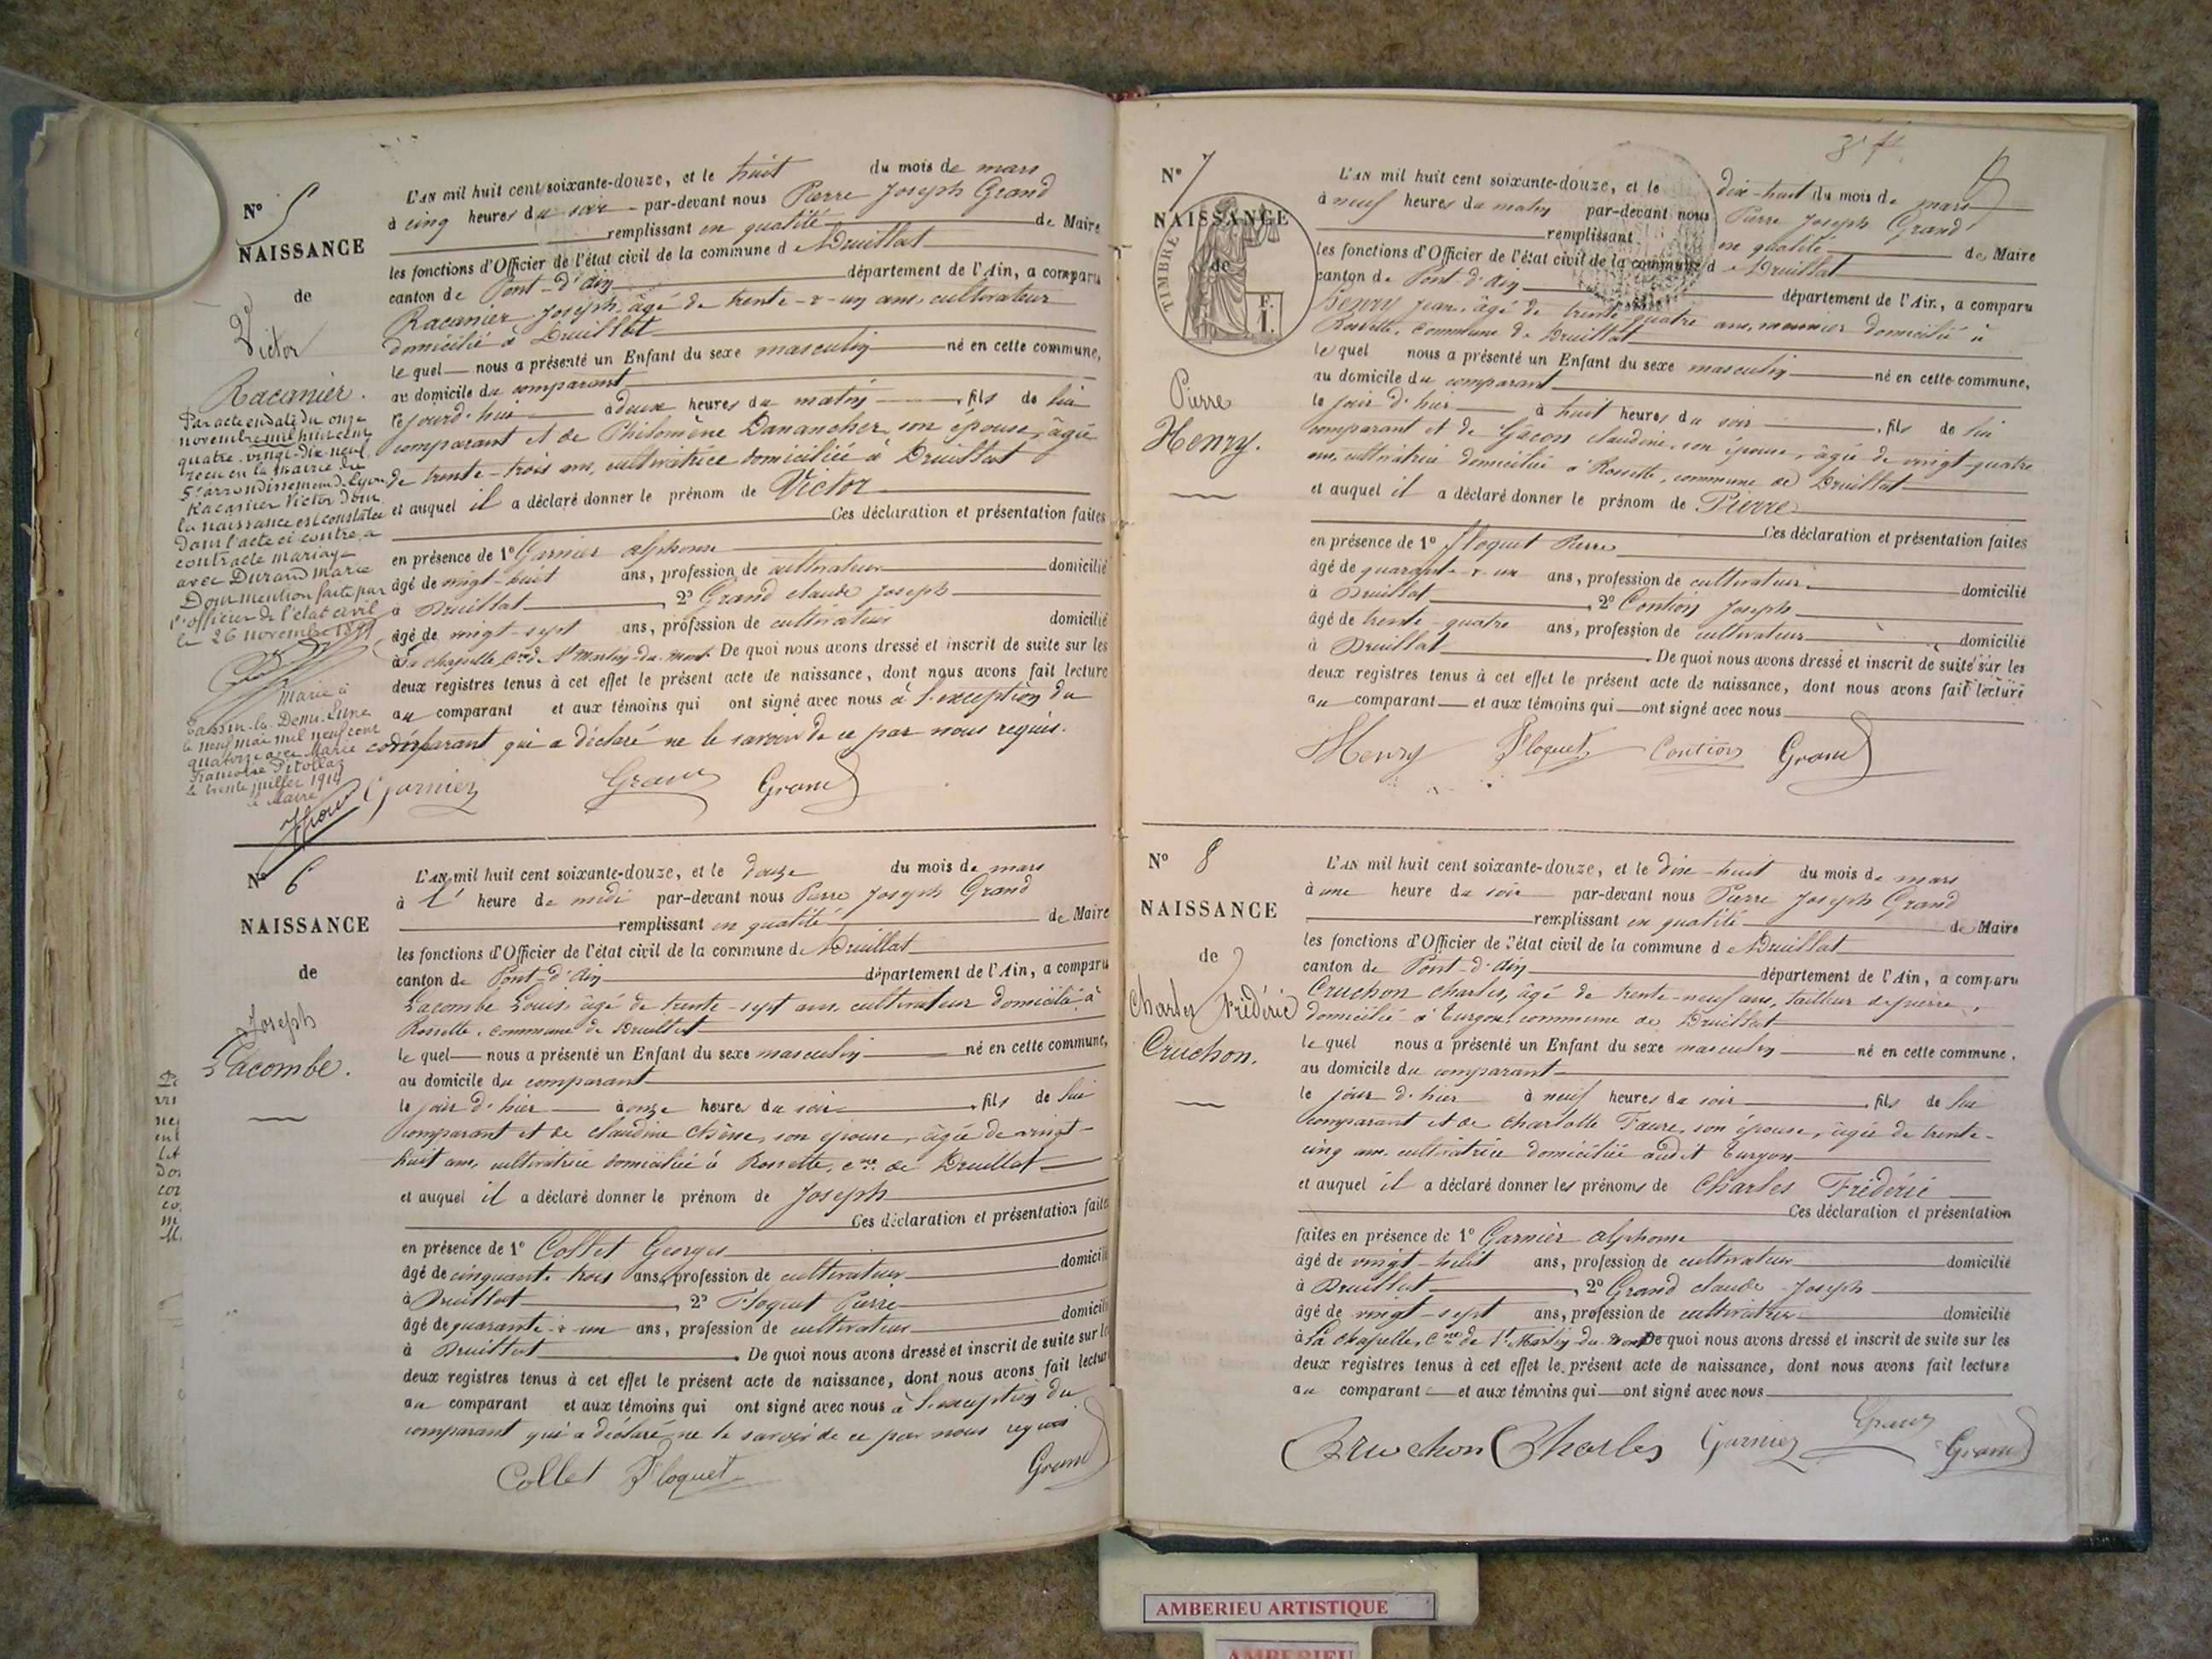 N° 5
NAISSANCE
de
Victor
Racanier.
Par acte en date du onze
novembre mil huit cent
quatre-vingt-dix-neuf
reçu en la mairie du
5e arrondissement de Lyon
Racanier Victor dont
la naissance est constatée
dans l'acte ci-contre, a
contracté mariage
avec Durand Marie
Dont mention faite par
l'officier de l'état civil
le 26 novembre 1899
Marié à
Tassin-la-Demi-Lune
le neuf mai mil neuf cent
quatorze avec Marie
Françoise Pitollaz
le trente juillet 1914
le Maire
L'AN mil huit cent soixante-douze, et le huit du mois de mars
à cinq heures du soir par-devant nous Pierre Joseph Grand
remplissant en qualité de Maire
les fonctions d'Officier de l'état civil de la commune de Druillat
canton de Pont-d'Ain département de l'Ain, a comparu
Racanier Joseph, âgé de trente-&-un ans, cultivateur
domicilié à Druillat
lequel nous a présenté un Enfant du sexe masculin né en cette commune,
au domicile du comparant
cejourd'hui à deux heures du matin, fils de lui
comparant et de Philomène Danancher, son épouse, âgée
de trente-trois ans, cultivatrice domiciliée à Druillat
et auquel il a déclaré donner le prénom de Victor
Ces déclaration et présentation faites
en présence de 1° Garnier alphonse
âgé de vingt-huit ans, profession de cultivateur domicilié
à Druillat, 2° Grand claude Joseph
âgé de vingt-sept ans, profession de cultivateur domicilié
à La chapelle, cne de St Martin-du-mont. De quoi nous avons dressé et inscrit de suite sur les
deux registres tenus à cet effet le présent acte de naissance, dont nous avons fait lecture
au comparant et aux témoins qui ont signé avec nous à l'exception du
comparant qui a déclaré ne le savoir de ce par nous requis.
Garnier Grand Grand
N° 6
NAISSANCE
de
Joseph
Lacombe.
L'AN mil huit cent soixante-douze, et le douze du mois de mars
à l' heure de midi par-devant nous Pierre Joseph Grand
remplissant en qualité de Maire
les fonctions d'Officier de l'état civil de la commune de Druillat
canton de Pont-d'Ain département de l'Ain, a comparu
Lacombe Louis, âgé de trente-sept ans, cultivateur domicilié à
Rossette, commune de Druillat
lequel nous a présenté un Enfant du sexe masculin né en cette commune,
au domicile du comparant
le jour d'hier à onze heures du soir, fils de lui
comparant et de claudine chêne, son épouse, âgée de vingt-
huit ans, cultivatrice domiciliée à Rossette, cne de Druillat
et auquel il a déclaré donner le prénom de Joseph
Ces déclaration et présentation faites
en présence de 1° Collet Georges
âgé de cinquante-trois ans, profession de cultivateur domicilié
à Druillat, 2° Floquet Pierre
âgé de quarante-&-un ans, profession de cultivateur domicilié
à Druillat. De quoi nous avons dressé et inscrit de suite sur les
deux registres tenus à cet effet le présent acte de naissance, dont nous avons fait lecture
au comparant et aux témoins qui ont signé avec nous à l'exception du
comparant qui a déclaré ne le savoir de ce par nous requis
Collet Floquet Grand
N° 7
NAISSANCE
de
TIMBRE
F.
1.
Pierre
Henry.
L'AN mil huit cent soixante-douze, et le dix-huit du mois de mars
à neuf heures du matin par-devant nous Pierre Joseph Grand
remplissant en qualité de Maire
les fonctions d'Officier de l'état civil de la commune de Druillat
canton de Pont-d'Ain département de l'Ain, a comparu
Henry Jean, âgé de trente-quatre ans, meunier domicilié à
Rossette, commune de Druillat
lequel nous a présenté un Enfant du sexe masculin né en cette commune,
au domicile du comparant
le jour d'hier à huit heures du soir, fils de lui
comparant et de Gâcon claudine, son épouse, âgée de vingt-quatre
ans, cultivatrice domiciliée à Rossette, commune de Druillat
et auquel il a déclaré donner le prénom de Pierre
Ces déclaration et présentation faites
en présence de 1° Floquet Pierre
âgé de quarante-&-un ans, profession de cultivateur domicilié
à Druillat, 2° Contion Joseph
âgé de trente-quatre ans, profession de cultivateur domicilié
à Druillat. De quoi nous avons dressé et inscrit de suite sur les
deux registres tenus à cet effet le présent acte de naissance, dont nous avons fait lecture
au comparant et aux témoins qui ont signé avec nous
Henry Floquet Contion Grand
N° 8
NAISSANCE
de
Charles Frédéric
Cruchon.
L'AN mil huit cent soixante-douze, et le dix-huit du mois de mars
à une heure du soir par-devant nous Pierre Joseph Grand
remplissant en qualité de Maire
les fonctions d'Officier de l'état civil de la commune de Druillat
canton de Pont-d'Ain département de l'Ain, a comparu
Cruchon charles, âgé de trente-neuf ans, tailleur de pierre,
domicilié à Turgon, commune de Druillat
lequel nous a présenté un Enfant du sexe masculin né en cette commune,
au domicile du comparant
le jour d'hier à neuf heures du soir, fils de lui
comparant et de charlotte Faure, son épouse, âgée de trente-
cinq ans, cultivatrice domiciliée audit Turgon
et auquel il a déclaré donner les prénoms de Charles Frédéric
Ces déclaration et présentation
faites en présence de 1° Garnier alphonse
âgé de vingt-huit ans, profession de cultivateur domicilié
à Druillat, 2° Grand claude Joseph
âgé de vingt-sept ans, profession de cultivateur domicilié
à La chapelle, cne de St Martin-du-mont De quoi nous avons dressé et inscrit de suite sur les
deux registres tenus à cet effet le présent acte de naissance, dont nous avons fait lecture
au comparant et aux témoins qui ont signé avec nous
Cruchon Charles Garnier Grand Grand
AMBERIEU ARTISTIQUE
AMBERIEU